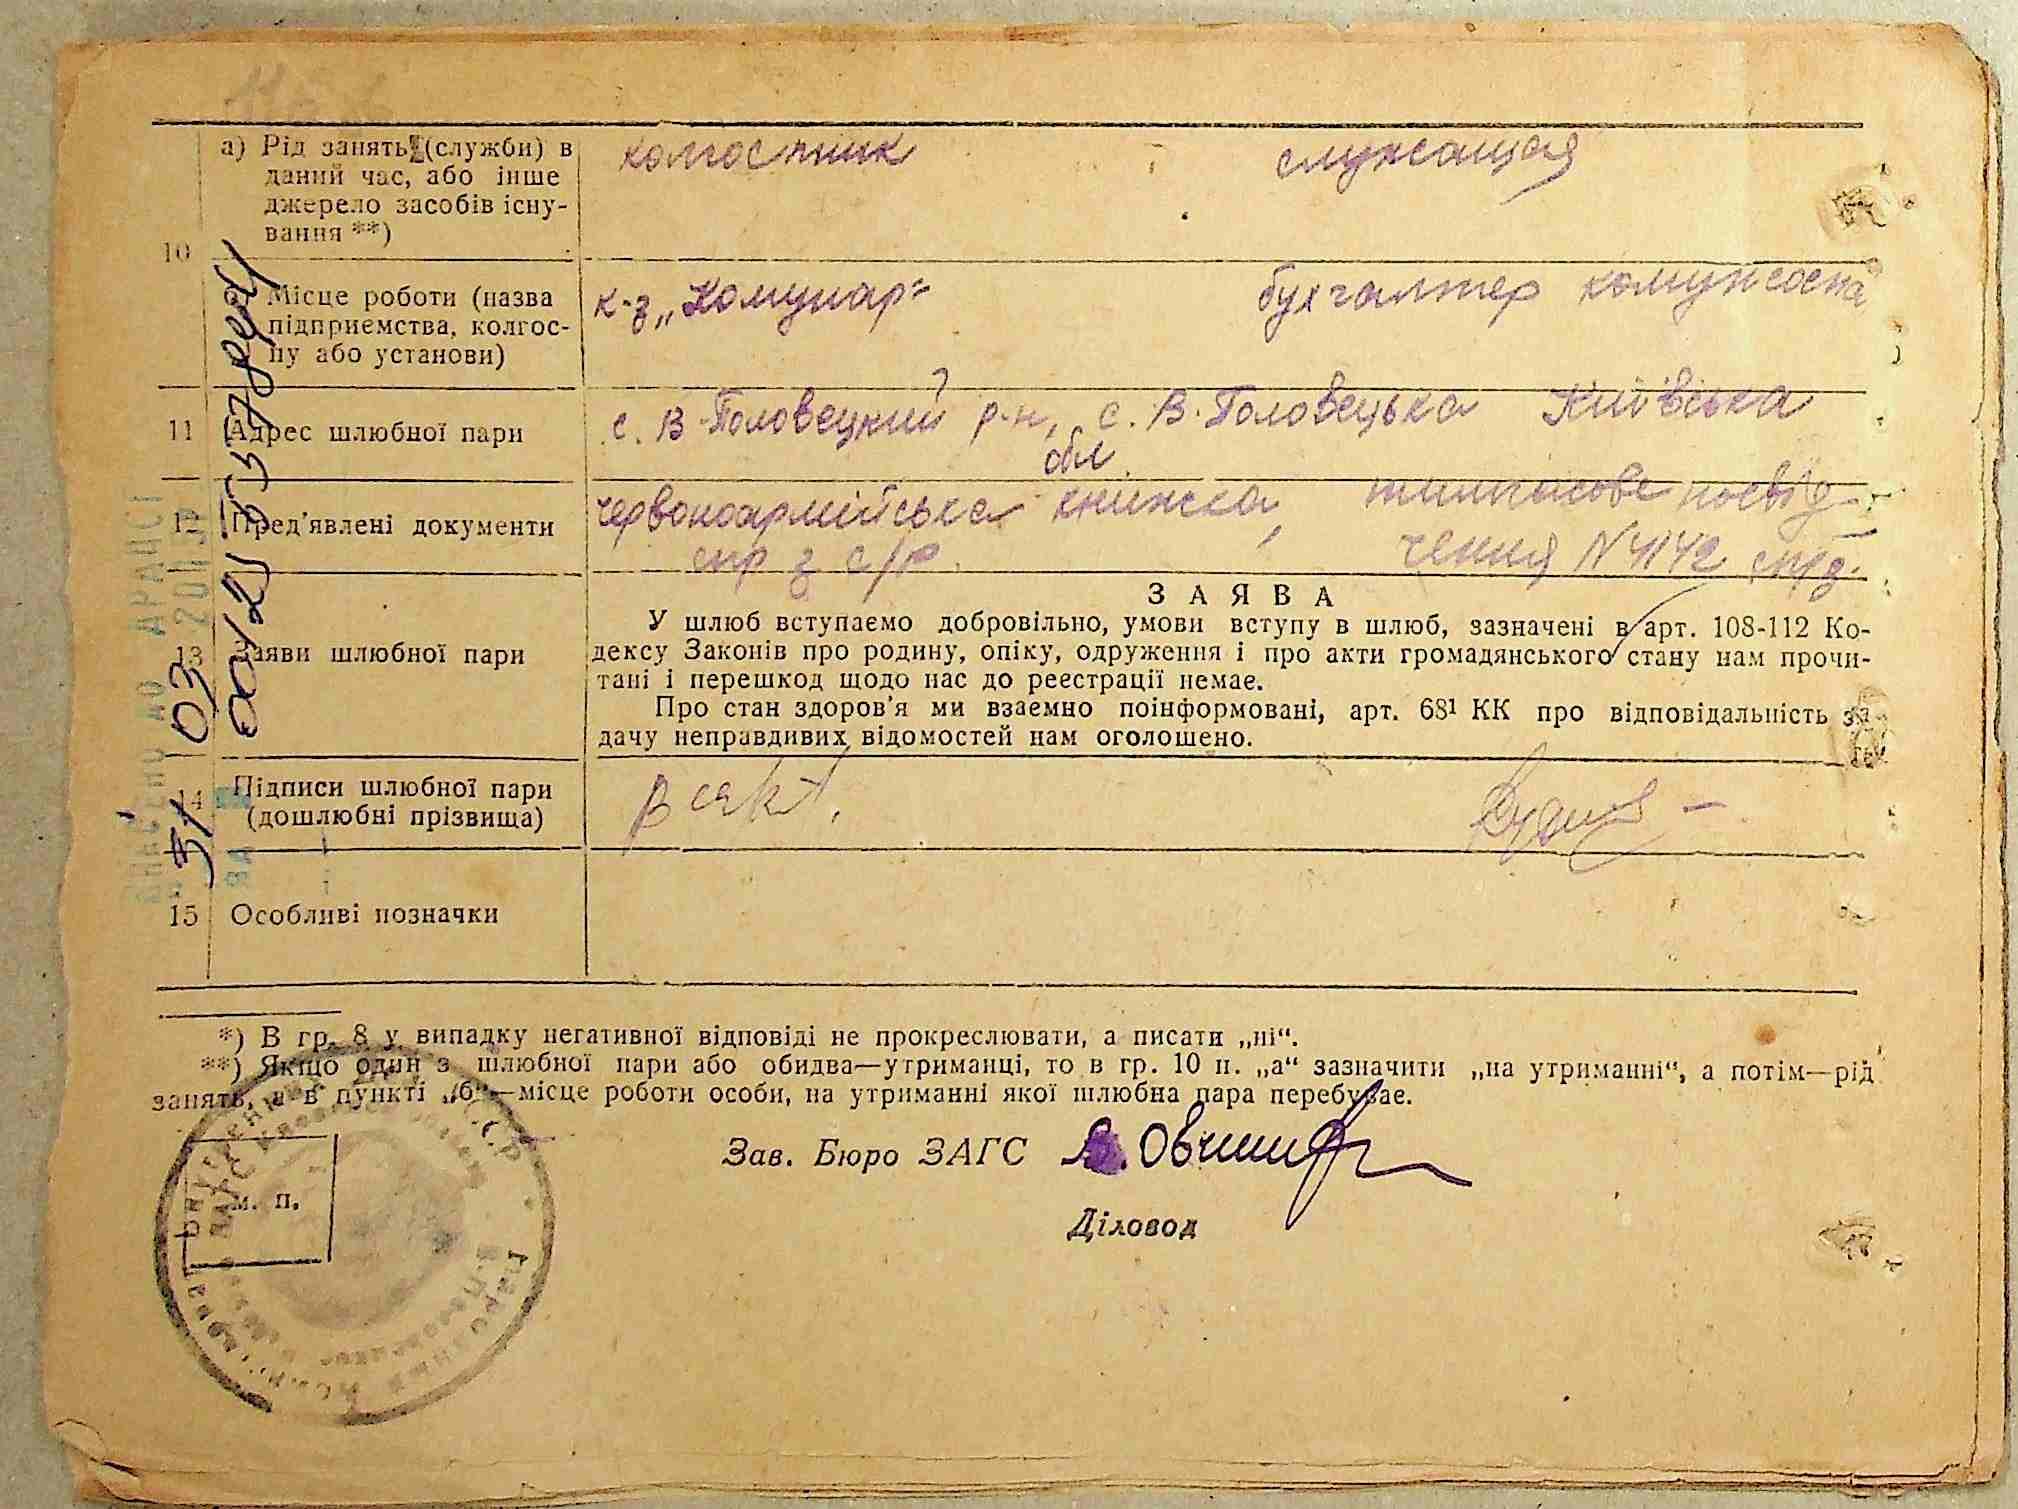 10
а) Рід занять (служби) в
даний час, або інше
джерело засобів існу-
вання **)
колгоспник
служащая
Місце роботи (назва
підприємства, колгос-
пу або установи)
к-з „Комунар“
бухгалтер
11
Адрес шлюбної пари
с. В-Половецький р-н, с. В-Половецька Київська
обл.
12
Пред'явлені документи
червоноармійська книжка, тимчасове посвід-
спр з с/р. чення N 4142
13
Заяви шлюбної пари
ЗАЯВА
У шлюб вступаємо добровільно, умови вступу в шлюб, зазначені в арт. 108-112 Ко-
дексу Законів про родину, опіку, одруження і про акти громадянського стану нам прочи-
тані і перешкод щодо нас до реєстрації немає.
Про стан здоров'я ми взаємно поінформовані, арт. 68¹ КК про відповідальність за
дачу неправдивих відомостей нам оголошено.
14
Підписи шлюбної пари
(дошлюбні прізвища)
15
Особливі позначки
*) В гр. 8 у випадку негативної відповіді не прокреслювати, а писати „ні“.
**) Якщо один з шлюбної пари або обидва—утриманці, то в гр. 10 п. „а“ зазначити „на утриманні“, а потім—рід
занять, а в пункті „б“—місце роботи особи, на утриманні якої шлюбна пара перебуває.
Зав. Бюро ЗАГС
м. п.
Діловод